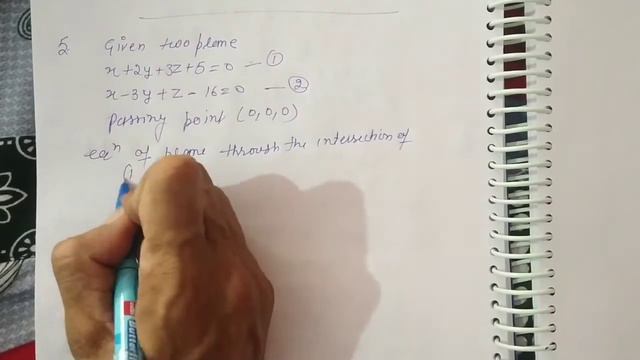 5 Given two plane
x+2y+3z+5=0 — ①
x-3y+z-16=0 — ②
passing point (0,0,0)
eqⁿ of plane through the intersection of